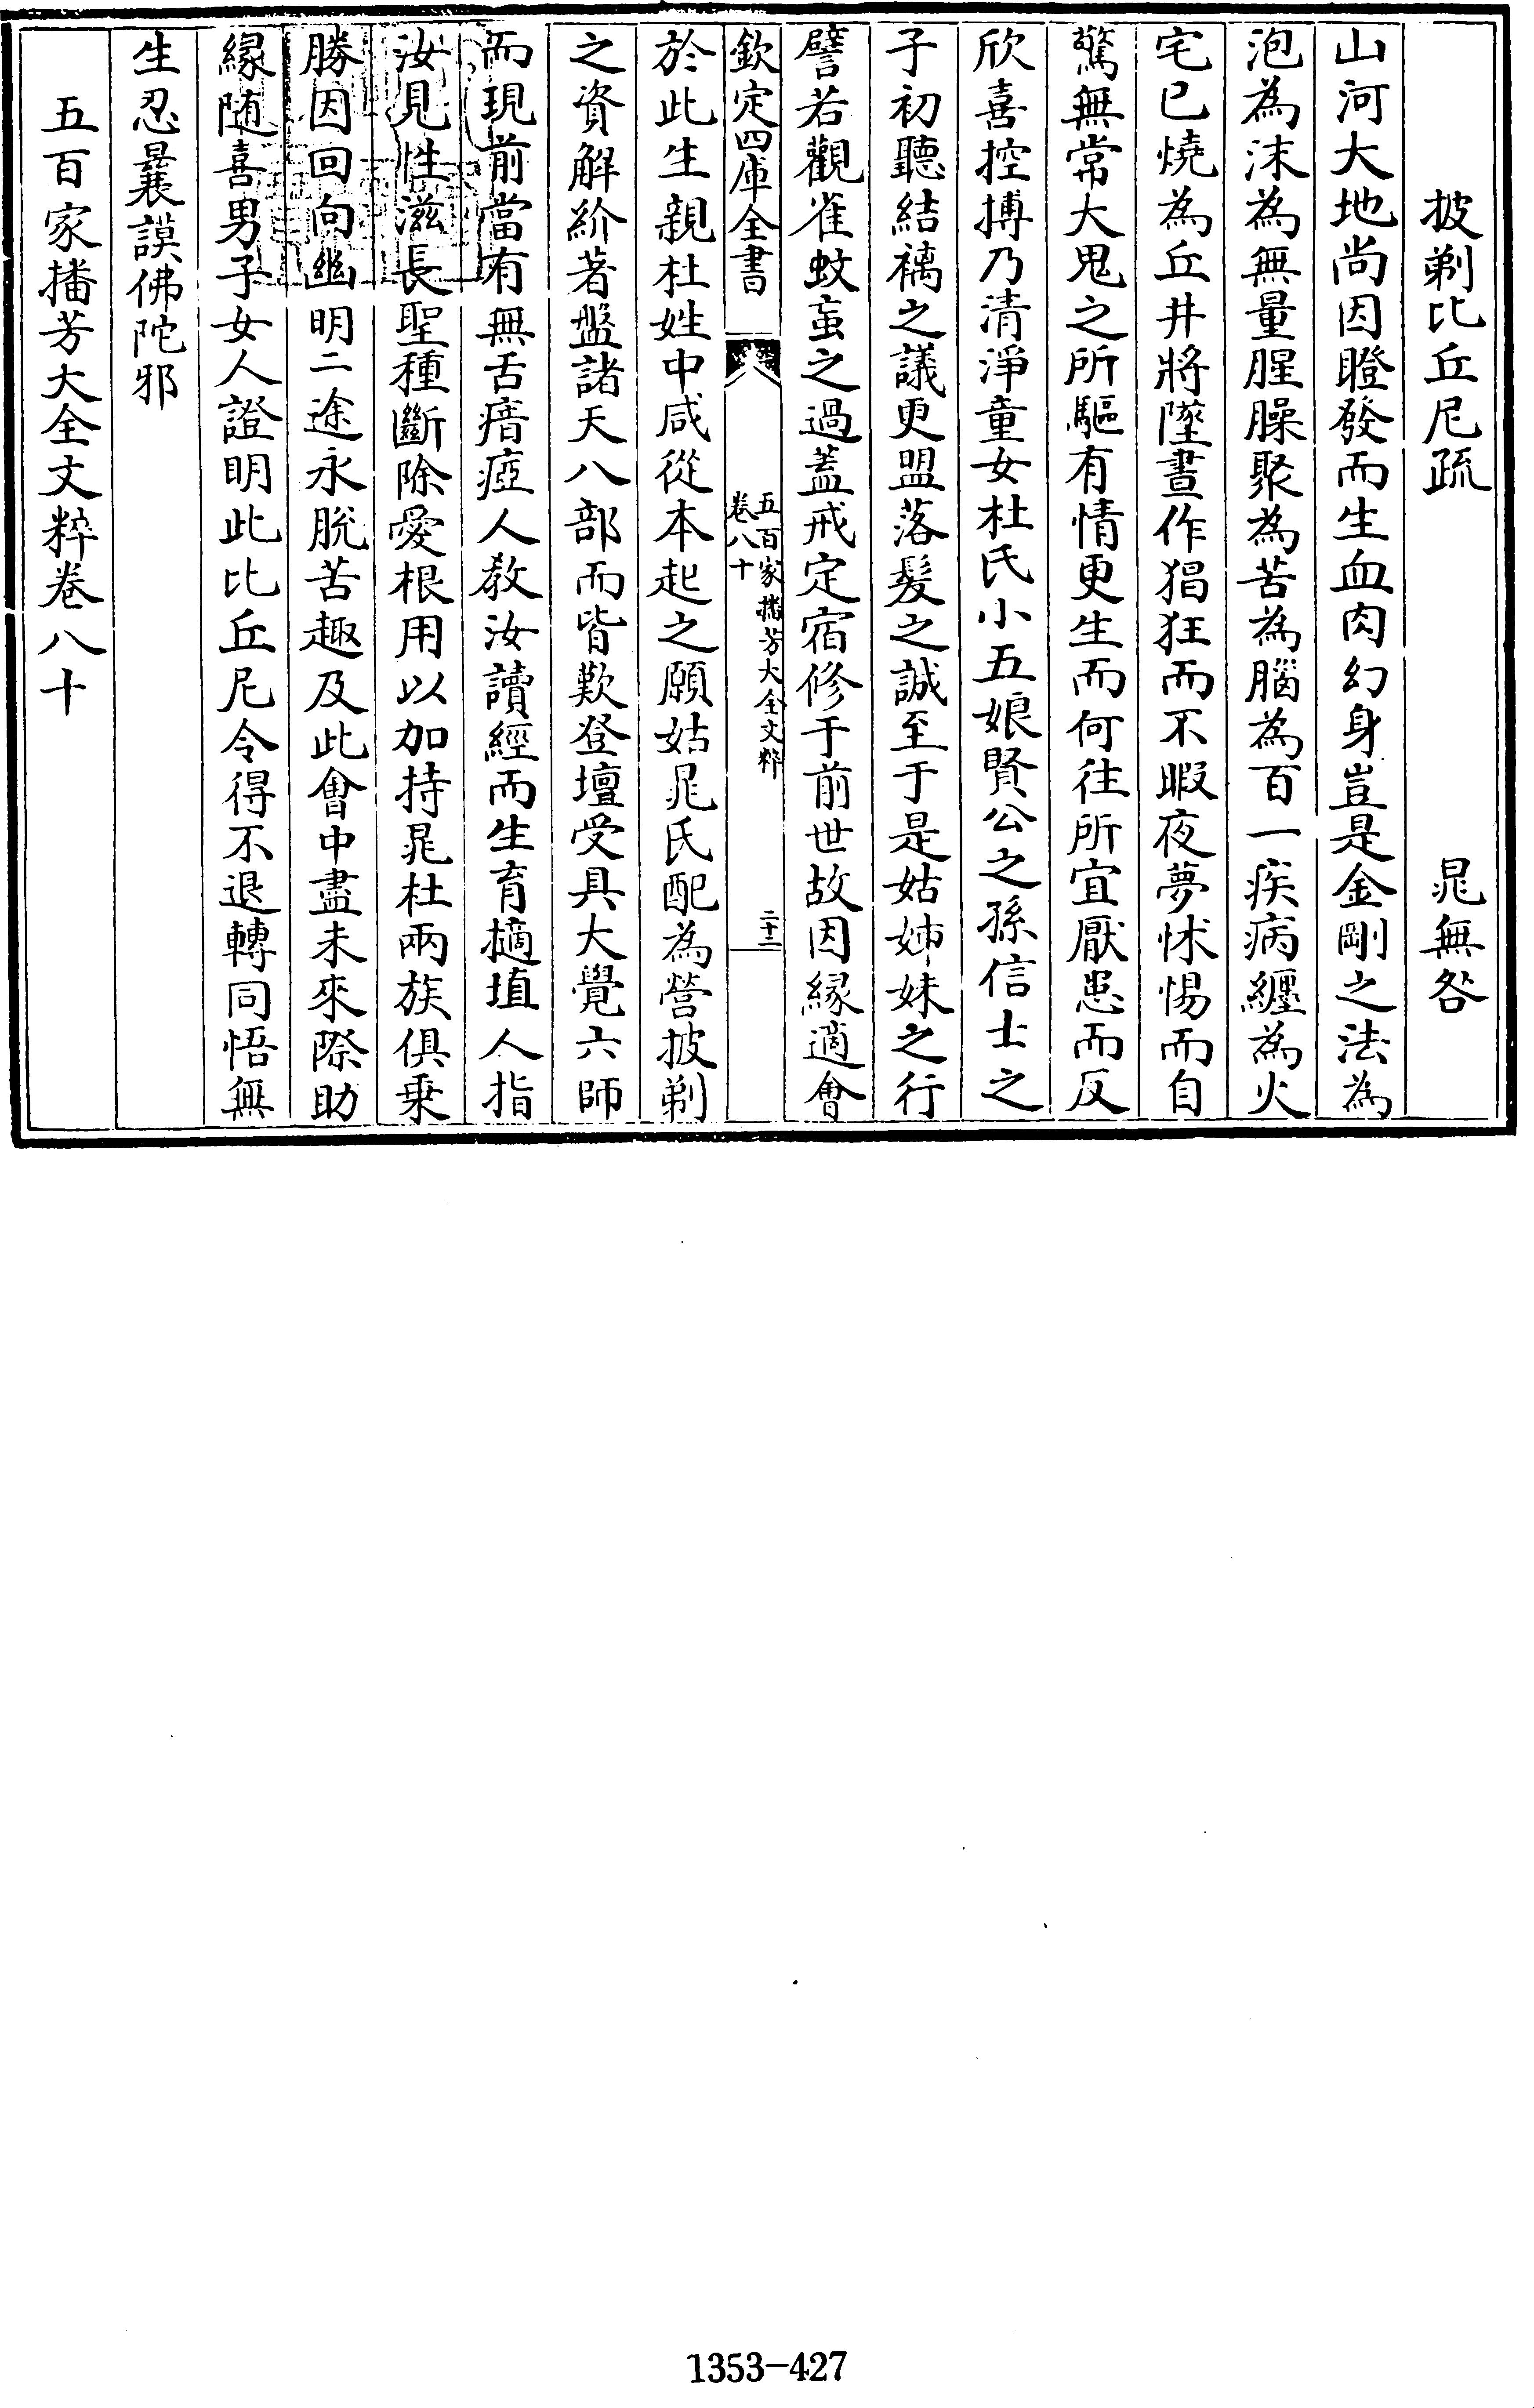 披剃比丘尼疏　晁無咎
山河大地尚因瞪發而生血肉幻身豈是金剛之法為
泡為沫為無量腥臊聚為苦為腦為百一疾病纒為火
宅已燒為丘井將墜晝作猖狂而不暇夜夢怵惕而自
驚無常大鬼之所驅有情更生而何往所宜厭患而反
欣喜控摶乃清淨童女杜氏小五娘賢公之孫信士之
子初聽結褵之議更盟落髮之誠至于是姑姊妹之行
譬若觀雀蚊䖟之過蓋戒定宿修于前世故因縁適會
欽定四庫全書
五百家播芳大全文粹
卷八十
二十三
於此生親杜姓中咸從本起之願姑晁氏配為營披剃
之資解紒著盤諸天八部而皆歎登壇受具大覺六師
而現前當有無舌瘖瘂人教汝讀經而生育擿埴人指
汝見性滋長聖種斷除愛根用以加持晁杜兩族俱乗
勝因回向幽明二途永脫苦趣及此㑹中盡未來際助
縁随喜男子女人證明此比丘尼令得不退轉同悟無
生忍曩謨佛陀邪
五百家播芳大全文粹卷八十
1353-427